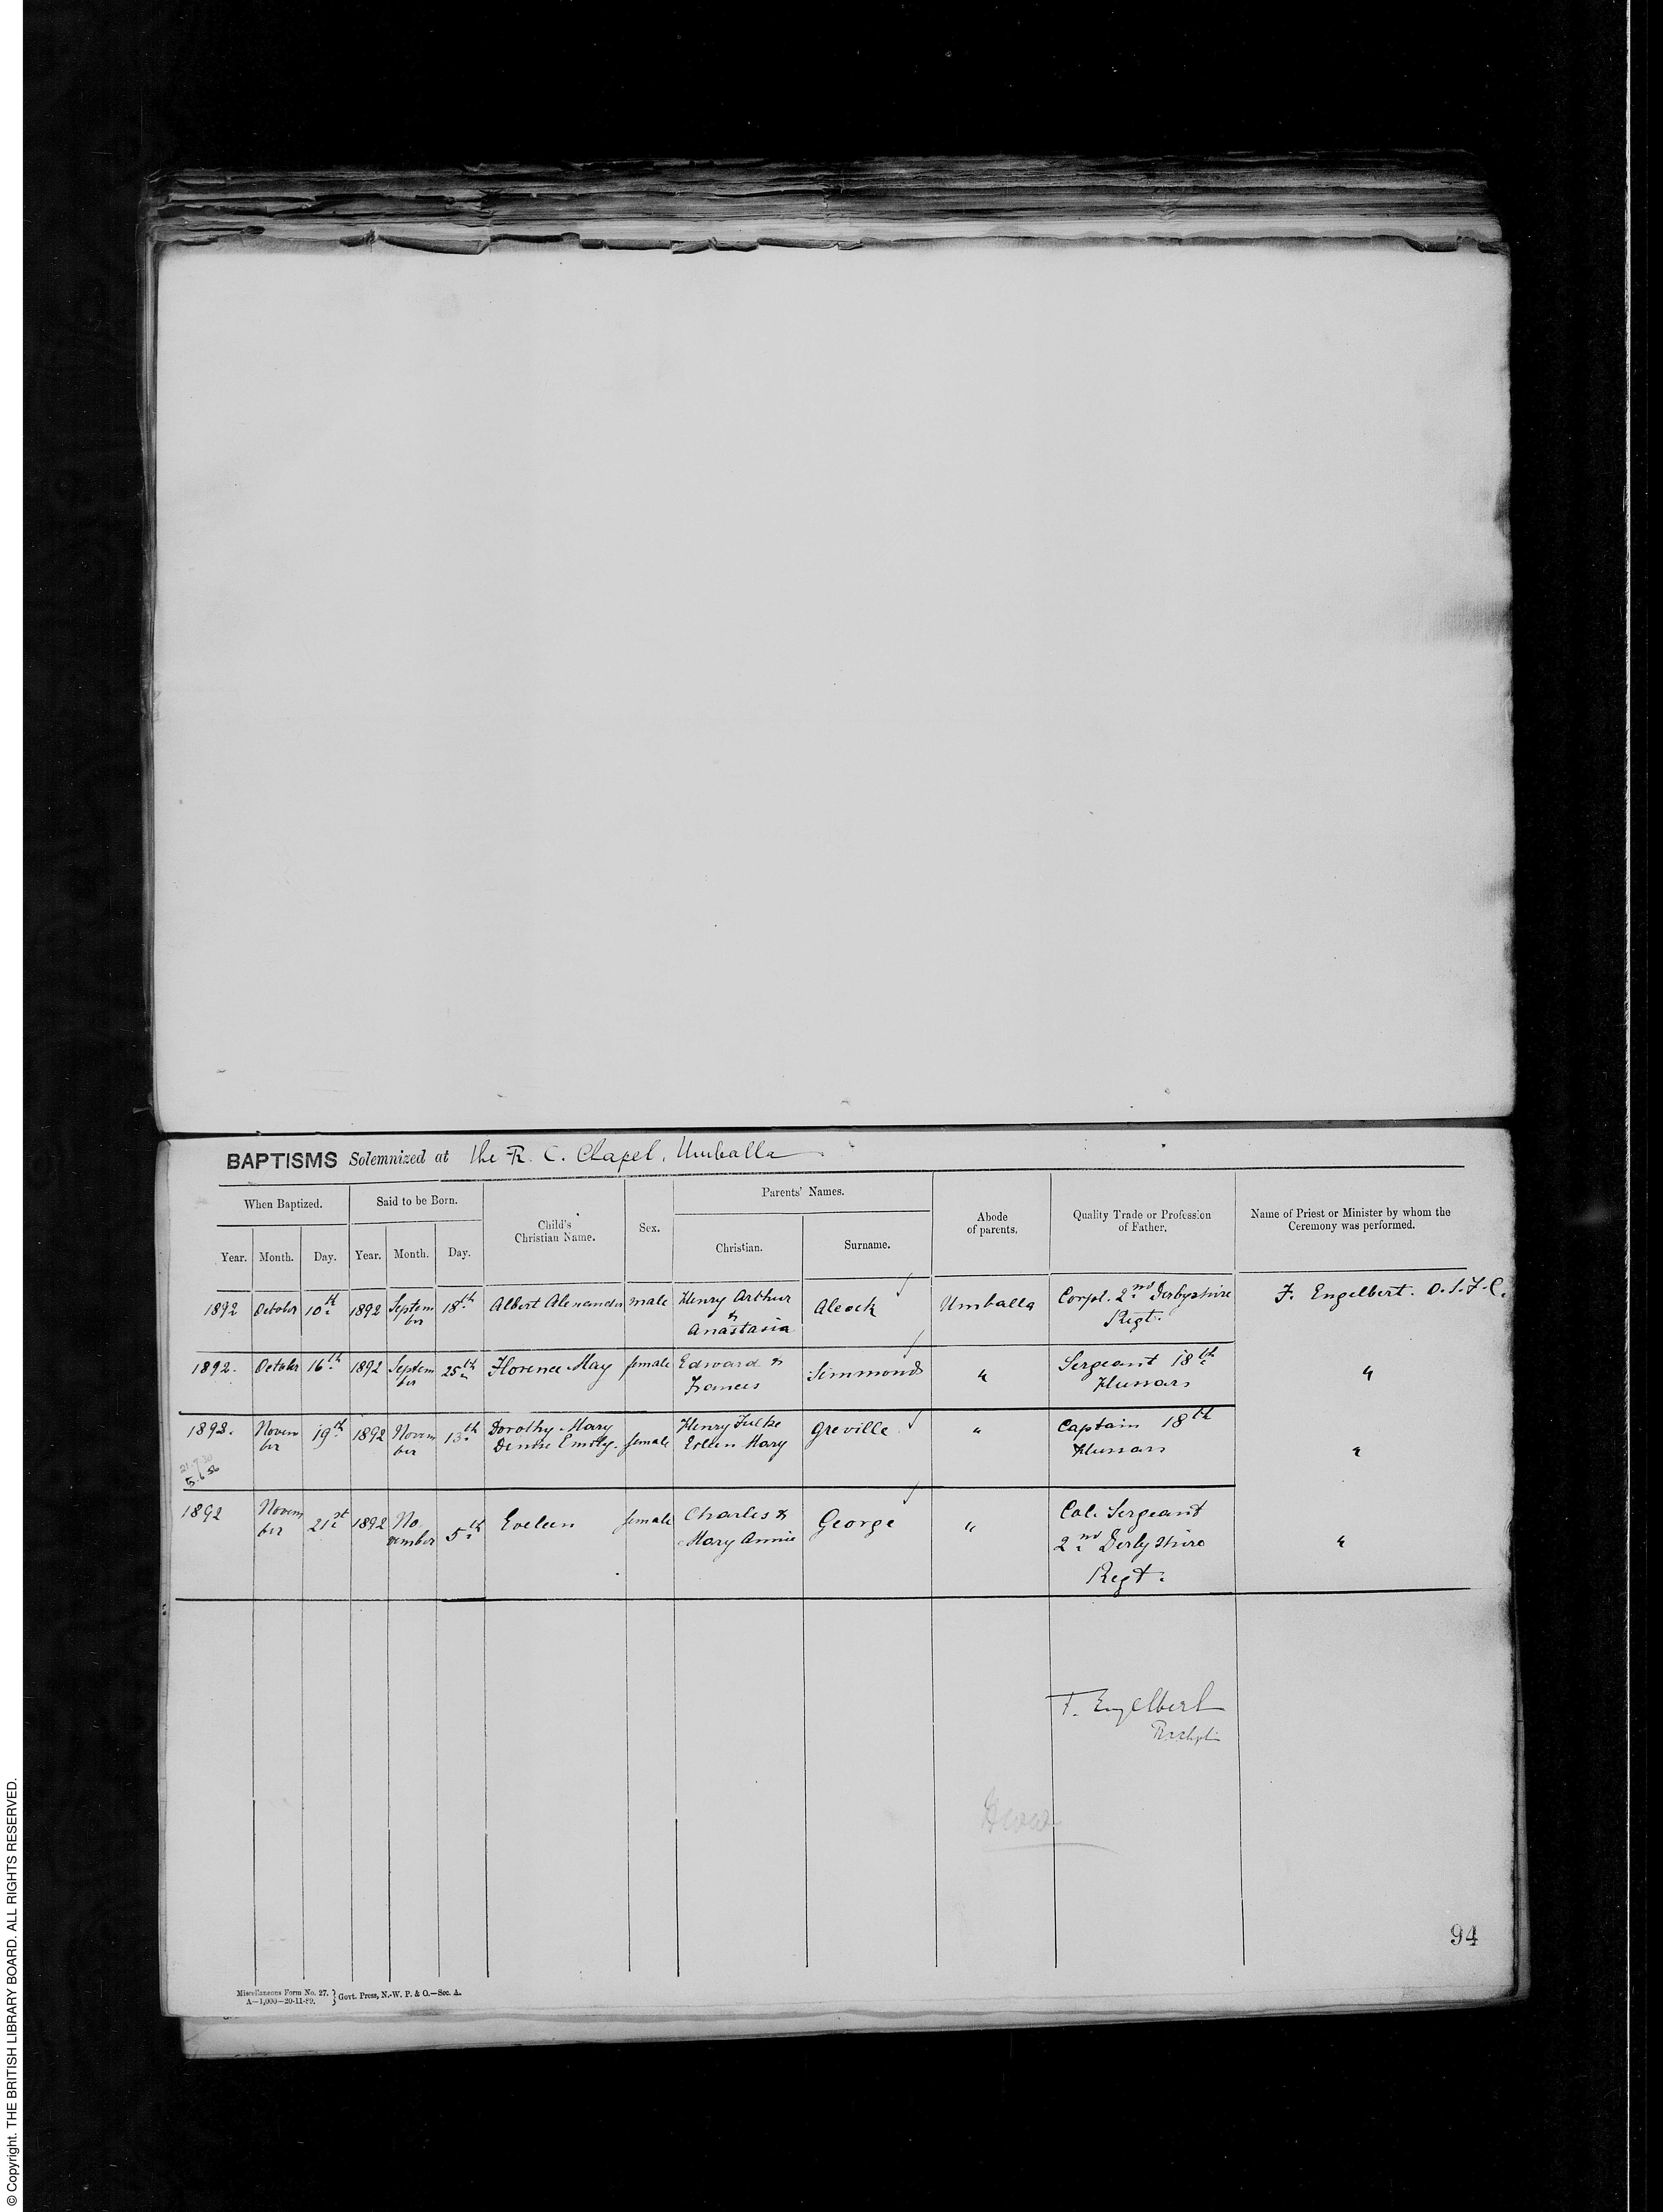 BAPTISMS Solemnized at the R. C. Chapel, Umballa
When Baptized. Said to be Born. Child's Christian Name. Sex. Parents' Names. Abode of parents. Quality Trade or Profession of Father. Name of Priest or Minister by whom the Ceremony was performed.
Year. Month. Day. Year. Month. Day. Christian. Surname.
1892 October 10th 1892 Septem male Henry Arthur Alcock Umballa Corpl. 2nd Derbyshire F. Engelbert. O.S.F.C.
ber 18th Albert Alexander & Regt.
Anastasia
1892. October 16th 1892 Septem 25th Florence May female Edward & Simmonds " Sergeant 18th "
ber Frances Hussars
1892. Novem 19th 1892 Novem 13th Dorothy Mary Henry Fulke Greville " Captain 18th
ber ber Denise Emily. female Eileen Mary Hussars "
5.6.56
1892 Novem 21st 1892 No 5th Eveleen female Charles & George " Col. Sergeant
ber vember Mary Annie 2nd Derbyshire "
Regt.
F. Engelbert
94
Miscellaneous Form No. 27.
A—1,000—20-11-89. } Govt. Press, N.-W. P. & O.—Sec. A.
© Copyright. THE BRITISH LIBRARY BOARD. ALL RIGHTS RESERVED.